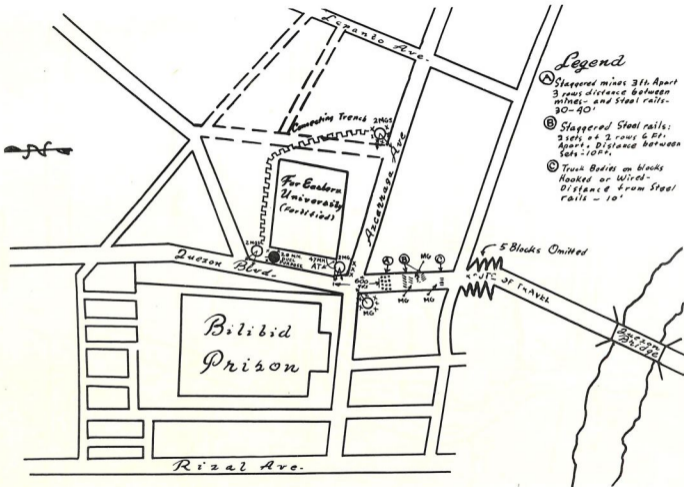 Lepanto Ave.
Legend
A Staggered mines 3 ft. Apart
3 rows distance between
mines- and Steel rails-
30-40'
B Staggered Steel rails:
2 sets of 2 rows 6 Ft.
Apart. Distance between
sets-10 Ft.
C Truck Bodies on blocks
Hooked or Wired-
Distance from Steel
rails - 10'
Connecting Trench
2MGS
Azcarraga Ave
Far Eastern
University
(Fortified)
N
2MGS
20 MM.
47MM.
AT
MG
A
B
C
MG
5 Blocks Omitted
Quezon Blvd.
MG
MG
MG
OF TRAVEL
Quezon
Bridge
Bilibid
Prison
Rizal Ave.